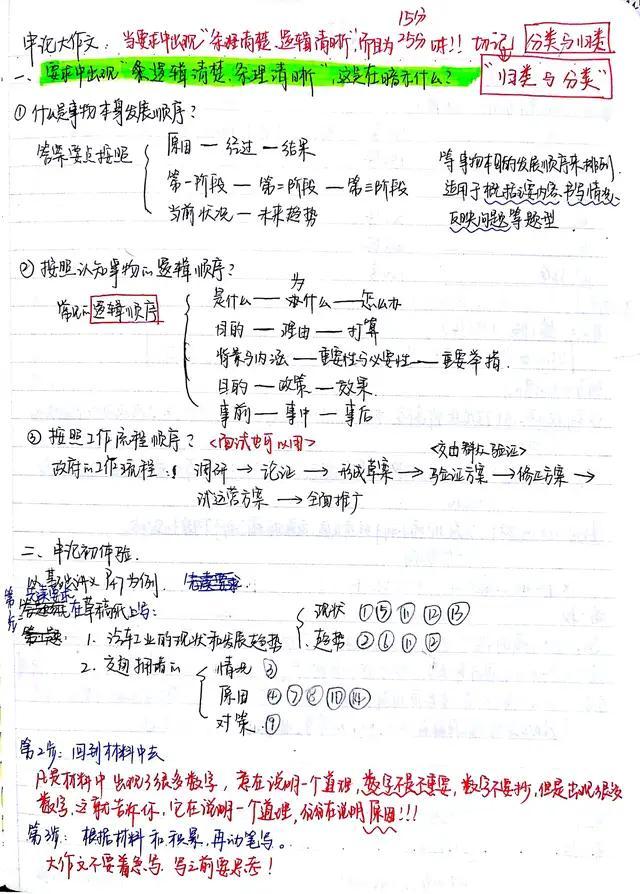 15分
申论大作文:当要求中出现"条理清楚、逻辑清晰",而且为25分时!! 切记 分类与归类
一、要求中出现"条逻辑清楚、条理清晰",这是在暗示什么? "归类与分类"
① 什么是事物本身发展顺序?
答案要点按照
原因—经过—结果
第一阶段—第二阶段—第三阶段
当前状况—未来趋势
等事物本身的发展顺序来排列.
适用于概括主要内容、书写情况、
反映问题等题型.
② 按照认知事物的逻辑顺序?
常见的逻辑顺序
为
是什么—什么—怎么办
目的—理由—打算
背景与内涵—重要性与必要性—重要举措.
目的—政策—效果.
事前—事中—事后
③ 按照工作流程顺序?<面试也可以用>
<交由群众验证>
政府的工作流程: 调研→论证→形成草案→验证方案→修正方案→
试运营方案→全面推广
二、申论初体验.
以基础讲义 例为例. 先读要求.
第一步:先读要求
在草稿纸上写:
1. 汽车工业的现状和发展趋势
现状 ①⑤⑪⑫⑬
趋势 ②⑥⑪⑫
2. 交通拥堵的
情况 ③
原因 ④⑦⑧⑩⑭
对策 ⑨
第2步:回到材料中去
凡是材料中出现了很多数字,意在说明一个道理,数字不是不重要,数字不要抄,但是出现了很多
数字,这就告诉你,它在说明一个道理,仍旧在说明原因!!!
第3步:根据材料和积累,再动笔写。
大作文不要着急写,写之前要思考!